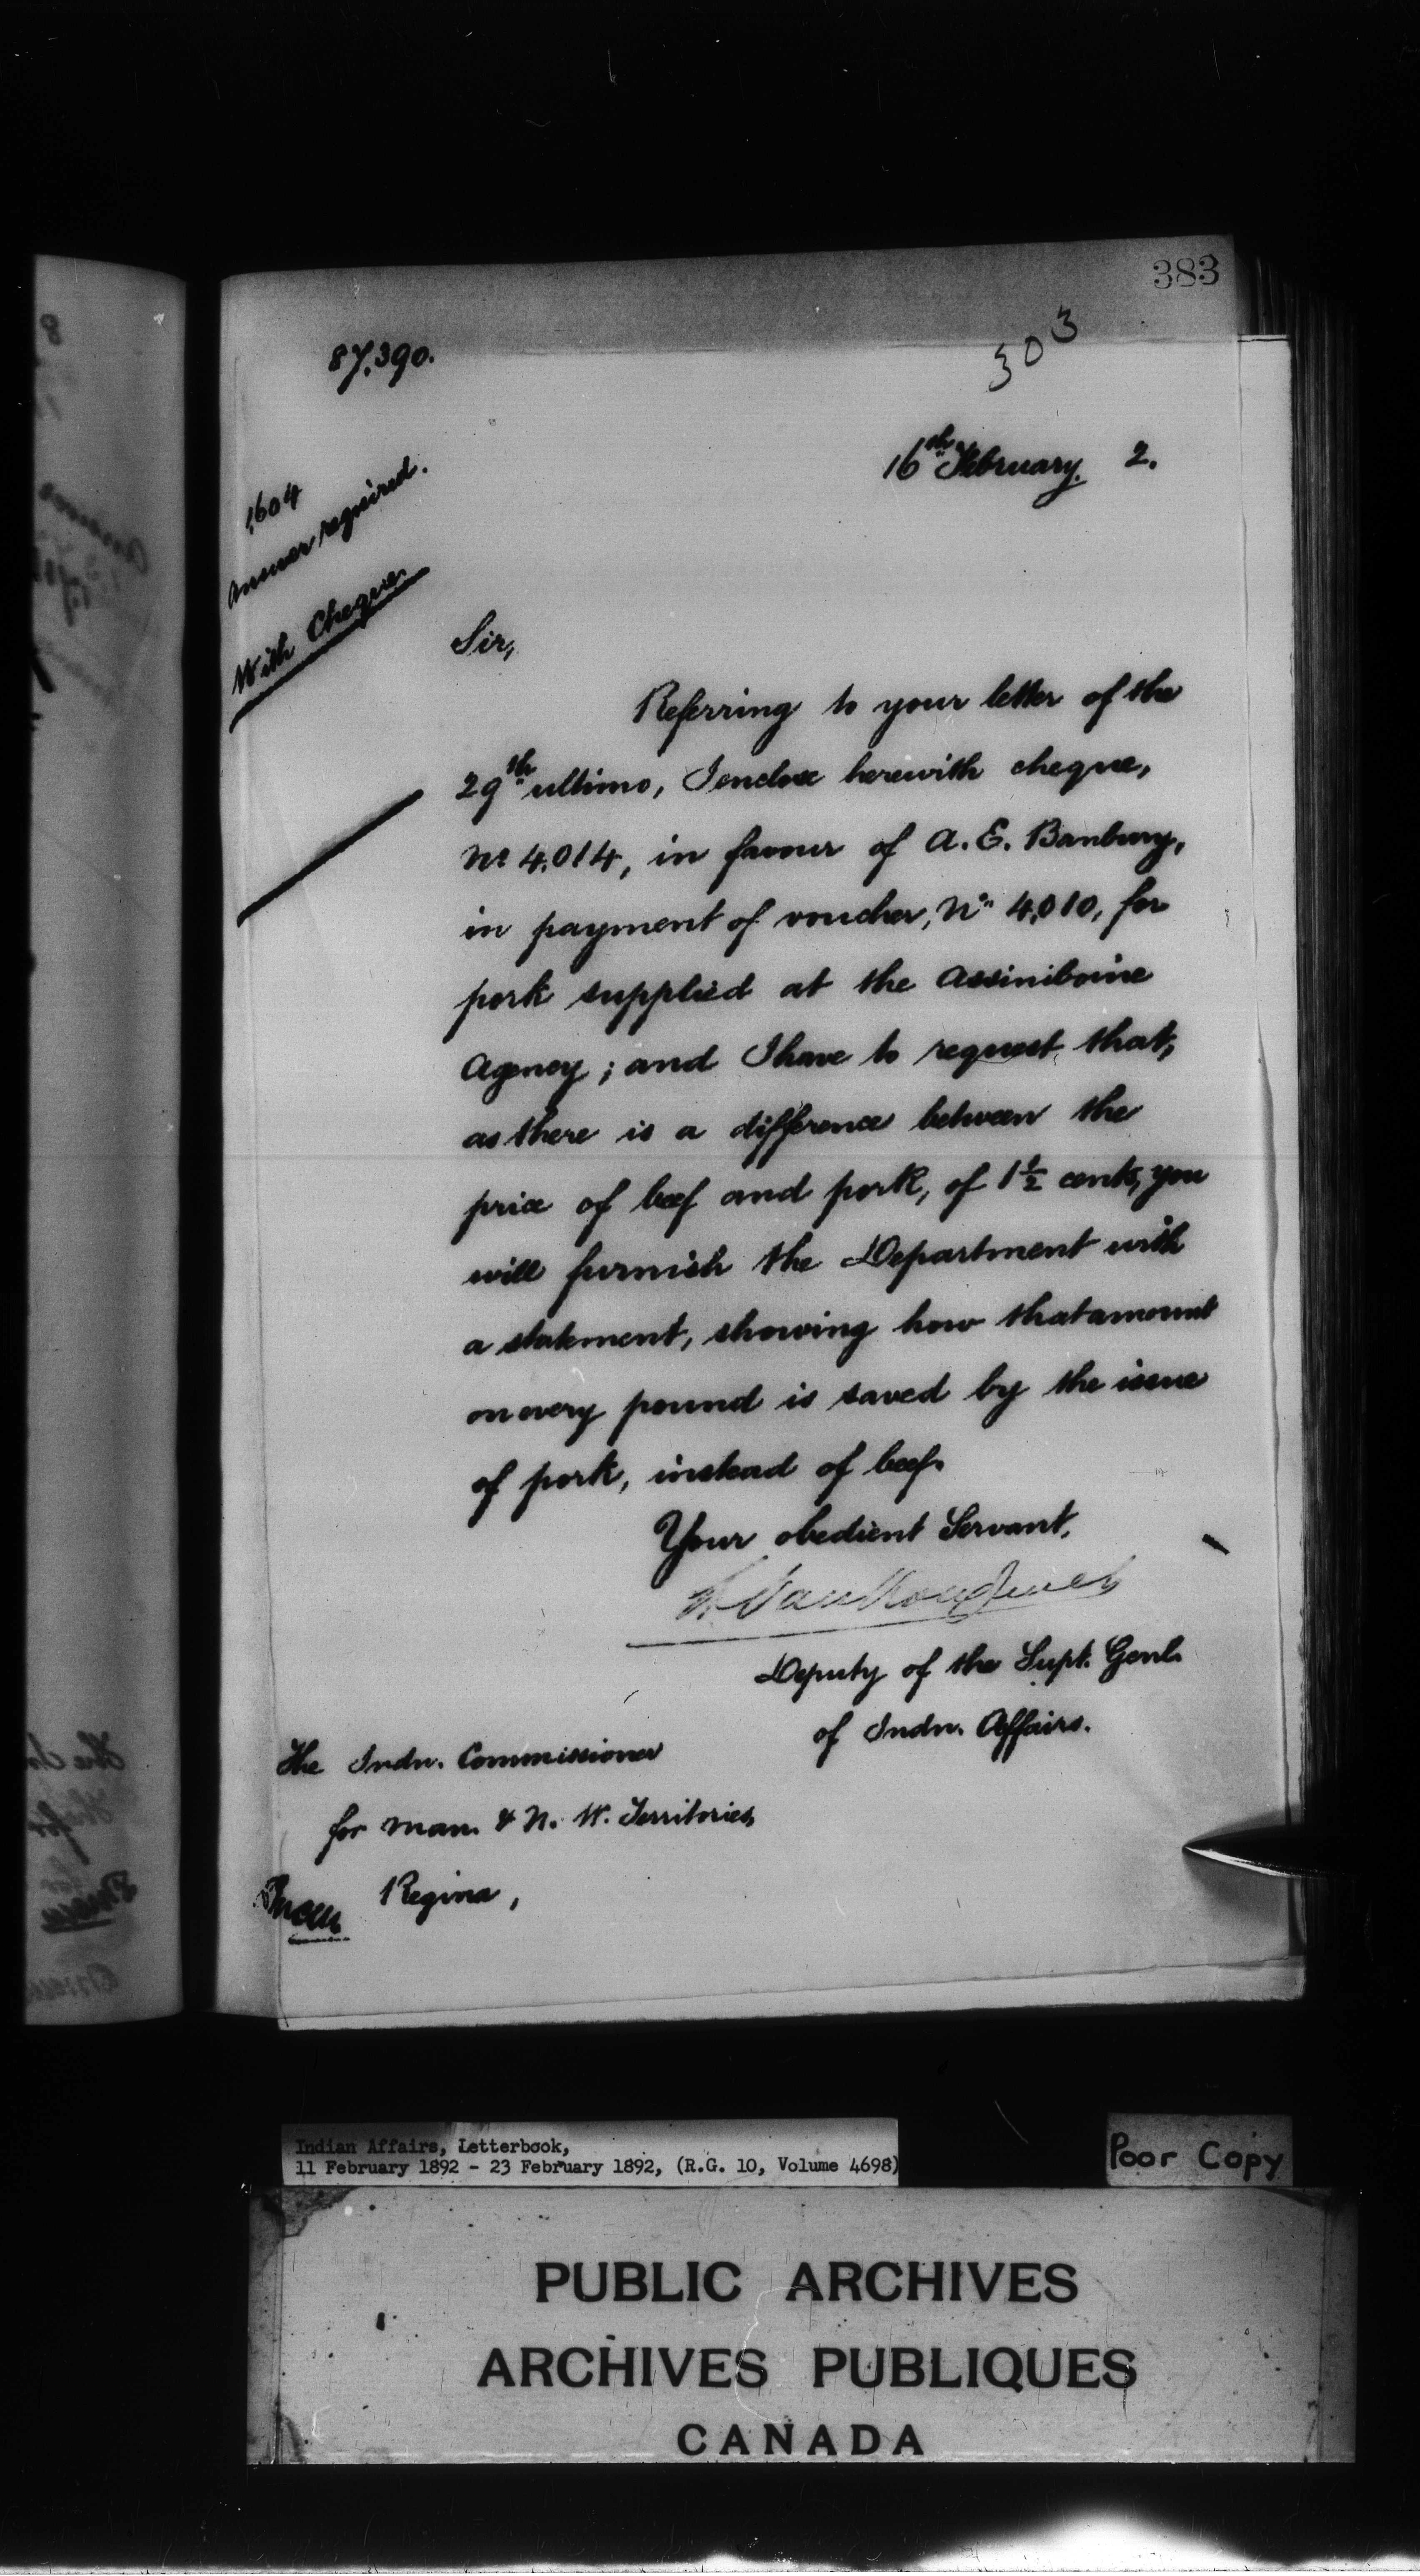 383
303
87.390.
16th February. 2.
1604
Answer required.
With Cheque.
Sir,
Referring to your letter of the
29th ultimo, I enclose herewith cheque,
No 4.014, in favour of A. E. Banbury,
in payment of voucher, No 4.010, for
pork supplied at the Assiniboine
Agency; and I have to request, that,
as there is a difference between the
price of beef and pork, of 1½ cents, you
will furnish the Department with
a statement, showing how that amount
on every pound is saved by the issue
of pork, instead of beef.
Your obedient Servant,
L. Vankoughnet
Deputy of the Supt. Genl.
of Indn. Affairs.
The Indn. Commissioner
for Man. & N. W. Territories,
Regina,
Indian Affairs, Letterbook,
11 February 1892 - 23 February 1892, (R.G. 10, Volume 4698)
Poor Copy
PUBLIC ARCHIVES
ARCHIVES PUBLIQUES
CANADA